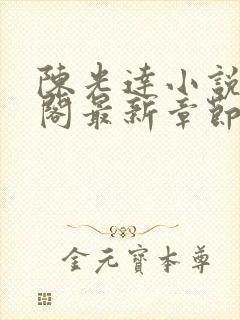 陳光達小說
閣最新章節
金元寶本尊